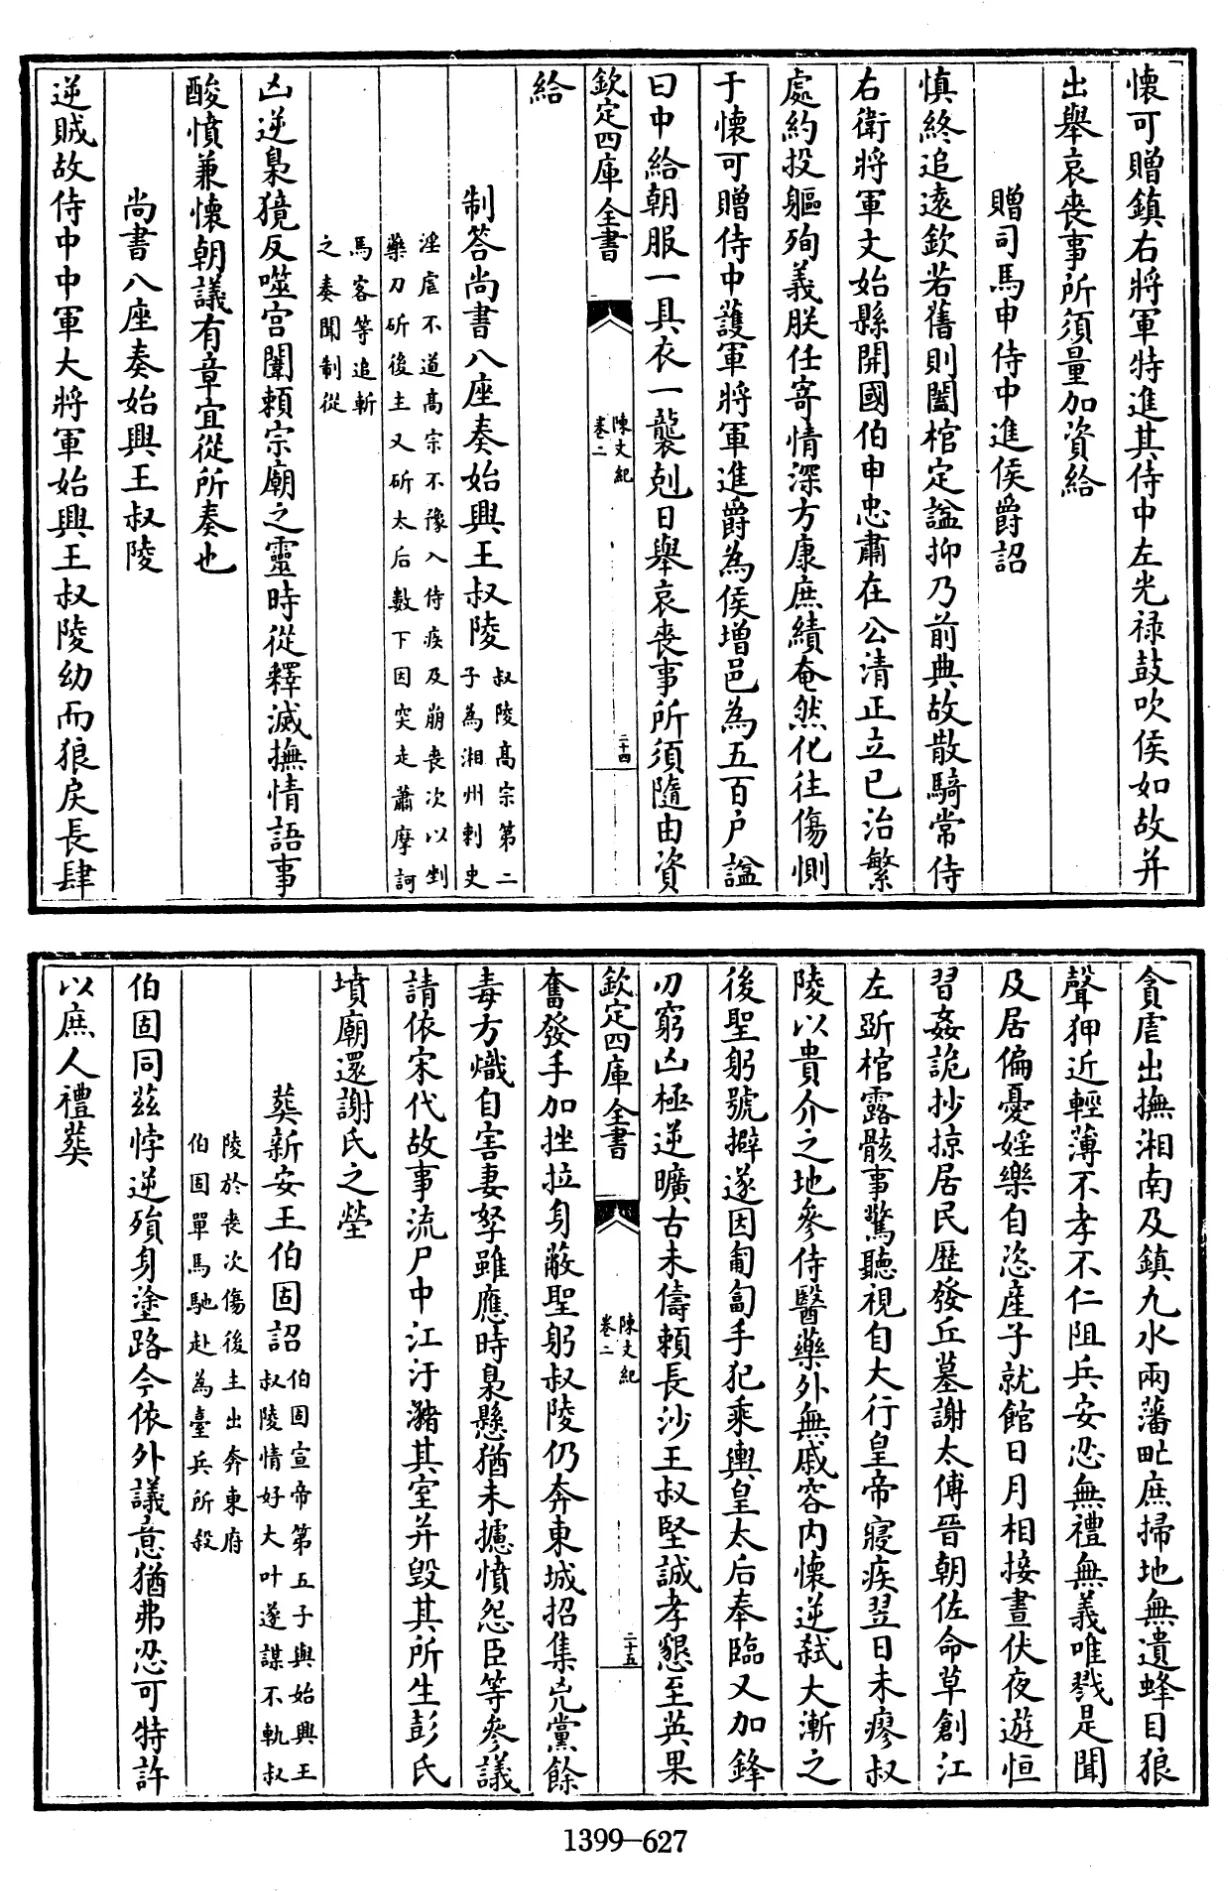 懷可贈鎮右將軍特進其侍中左光禄鼓吹侯如故并
出舉哀喪事所須量加資給
贈司馬申侍中進侯爵詔
慎終追逺欽若舊則闔棺定諡抑乃前典故散騎常侍
右衛將軍文始縣開國伯申忠肅在公清正立已治繁
處約投軀殉義朕任寄情深方康庶績奄然化往傷惻
于懷可贈侍中護軍將軍進爵為侯增邑為五百户諡
曰忠給朝服一具衣一襲剋日舉哀喪事所須隨由資
欽定四庫全書
陳文紀
卷二
二十四
給
制答尚書八座奏始興王叔陵叔陵髙宗第二
子為湘州刺史
淫虐不道髙宗不豫入侍疾及崩喪次以剉
藥刀斫後主又斫太后數下因突走蕭摩訶
馬客等追斬
之奏聞制從
凶逆梟獍反噬宫闈賴宗廟之靈時從釋滅撫情語事
酸憤兼懷朝議有章宜從所奏也
尚書八座奏始興王叔陵
逆賊故侍中中軍大將軍始興王叔陵幼而狼戾長肆
貪虐出撫湘南及鎮九水兩藩甿庶掃地無遺蜂目狼
聲狎近輕薄不孝不仁阻兵安忍無禮無義唯戮是聞
及居偏憂婬樂自恣産子就館日月相接晝伏夜遊恒
習姦詭抄掠居民歴發丘墓謝太傅晉朝佐命草創江
左斲棺露骸事驚聽視自大行皇帝寢疾翌日未瘳叔
陵以貴介之地參侍醫藥外無戚容内懐逆弑大漸之
後聖躬號擗遂因匍匐手犯乘輿皇太后奉臨又加鋒
刃窮凶極逆曠古未儔賴長沙王叔堅誠孝懇至英果
欽定四庫全書
陳文紀
卷二
二十五
奮發手加挫拉身蔽聖躬叔陵仍奔東城招集兇黨餘
毒方熾自害妻孥雖應時梟懸猶未攄憤怨臣等參議
請依宋代故事流尸中江汙瀦其室并毁其所生彭氏
墳廟還謝氏之塋
葬新安王伯固詔伯固宣帝第五子與始興王
叔陵情好大叶遂謀不軌叔
陵於喪次傷後主出奔東府
伯固單馬馳赴為臺兵所殺
伯固同兹悖逆殞身塗路今依外議意猶弗忍可特許
以庶人禮葬
1399-627